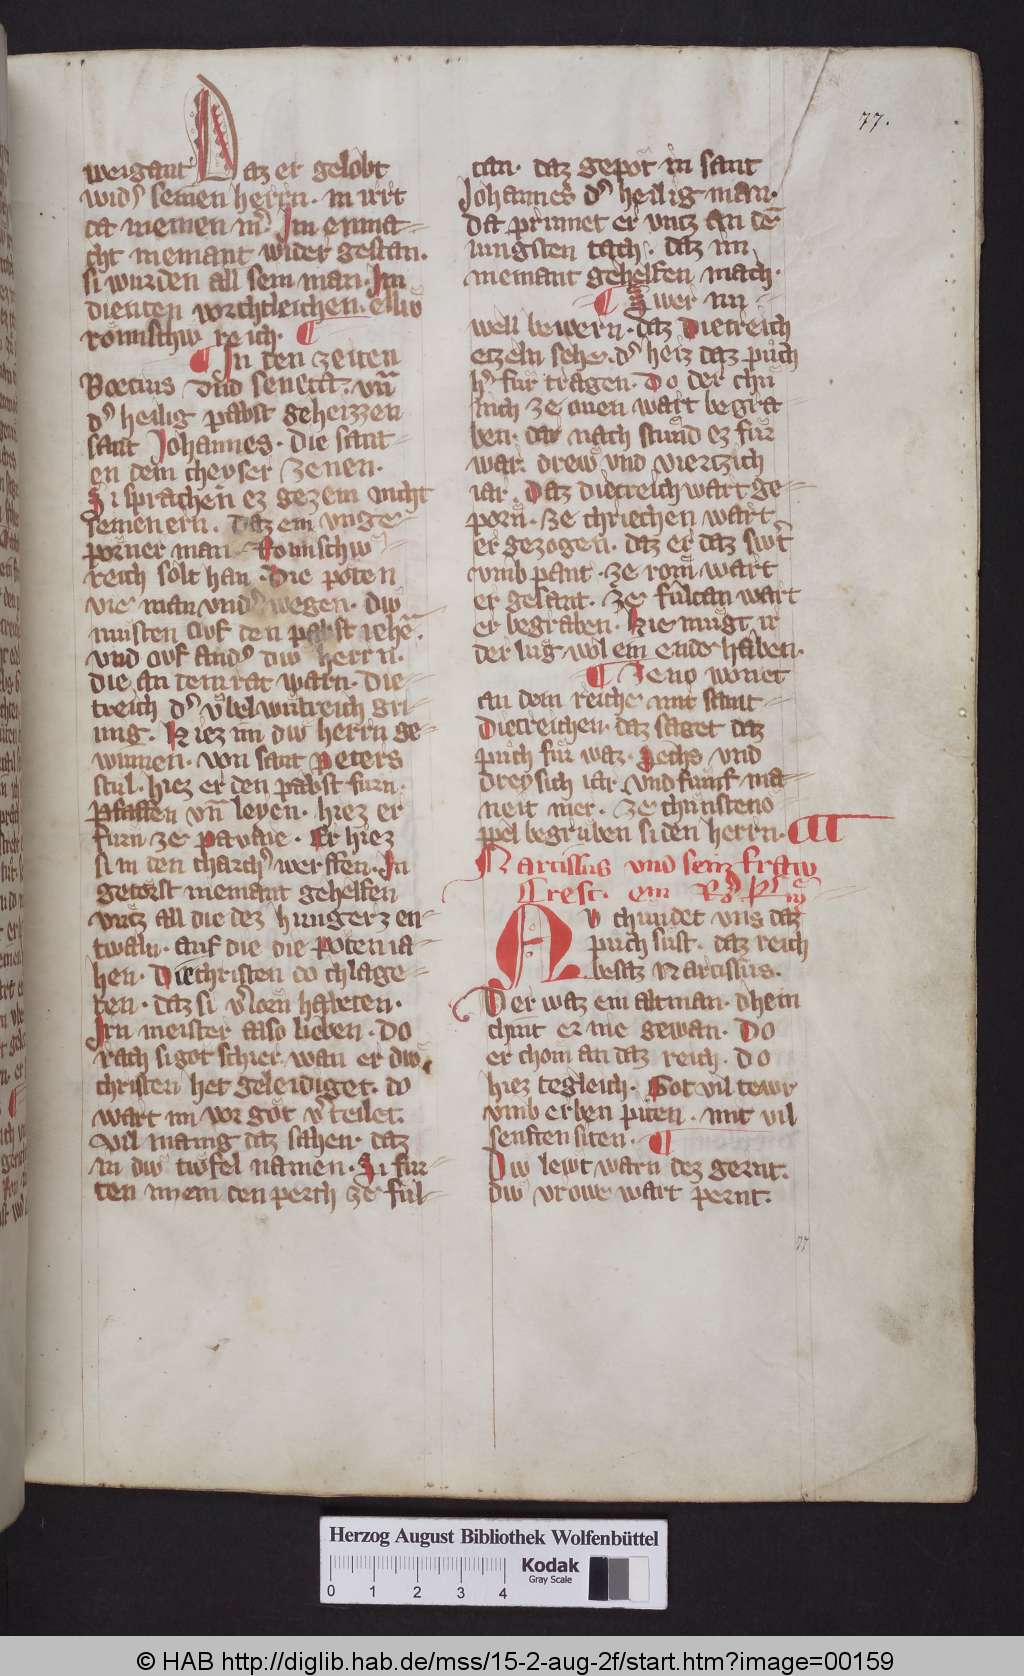 77.
weigant Daz er gelobt
wid͛ seinen herrn. in irrt
da niemen m͛. Im enma-
cht niemant wider gestan.
si wurden all sein man. Im
dienten vorchtleichen. elliv
romischw reich.
In den zeiten
Boecius vnd seneca. vn̄
d͛ heilig pabst geheizzen
sant Johannes. die sant-
en dem cheyser zenen.
Si sprachen ez gezem nicht
seinen ern. daz ein vnge-
porner man. Romischw
reich solt han. Die poten
vie man vnd wegen. diw
musten Ovf den pabst iehē.
vnd ovf and͛ diw herrn.
die an dem rat warn. Die-
treich d͛ vbel wutreich gri-
ing. Hiez im diw herrn ge-
winnen. von sant Peters
stul. hiez er den pabst furn.
Pfaffen vn̄ leyen. hiez er
furn ze pavaye. Er hiez
si in den charch͛ werffen. In
getorst niemant gehelfen
vntz all die dez hungerz en-
twaln. auf die die poten ia-
hen. Die christen do chlage-
ten. daz si v͛lorn habeten.
Irn meister also lieben. Do
rach si got schier. wan er diw
christen het geleidiget. do
wart im vor got v͛teilet.
Vil manig daz sahen. daz
in diw tiwfel namen. Si fur-
ten in jn ein den perch ze ful-
can. daz gepot in sant
Johannes d͛ heilig man.
da prinnet er vntz an dē
iungsten tach. daz im
niemant gehelfen mach.
Swer nu
well bewern. daz Dietreich
etzeln sehe. d͛ heiz daz puch
h͛ fur tragen. Do der chu-
nich ze ouen wart begra-
ben. dar nach stund ez fur
war. drew vnd viertzich
iar. Daz dietreich wart ge-
porn. ze chriechen wart
er gezogen. daz er daz sw͛t
vmb pant. ze rom wart
er gesant. ze fulcan wart
er begraben. hie mugt ir
der lug wol ein ende haben.
Zeno wonet
an dem reiche mit samt
Dietreichen. daz saget daz
puch fur waz. Sechs vnd
dreysich iar. vnd funf ma-
neit mer. ze christeno
ppel begruben si den herrn.
Narcissus vnd sein fraw
Crest. ein
NV chundet vns daz
puch sust. daz reich
besaz Narcissus.
Der waz ein altman. dhein
chint er nie gewan. Do
er chom an daz reich. do
hiez tegleich. Got vil tewr
vmb erben piten. mit vil
senften siten.
Diw lewt warn dez gernt.
diw vrowe wart pernt.
77
Herzog August Bibliothek Wolfenbüttel
Kodak
Gray Scale
0 1 2 3 4
© HAB http://diglib.hab.de/mss/15-2-aug-2f/start.htm?image=00159